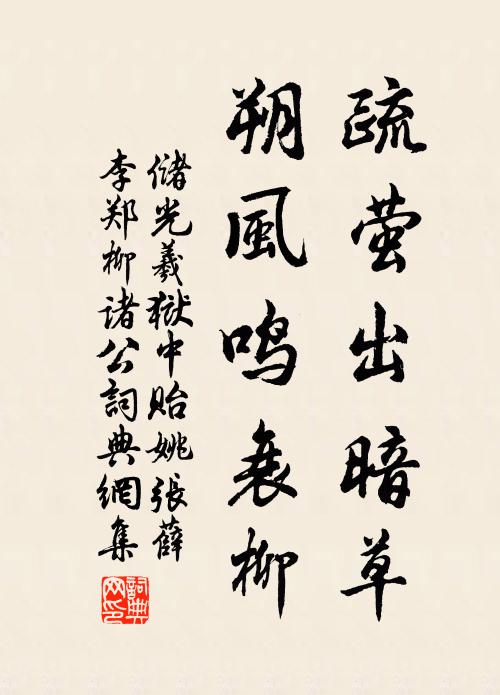 疏萤出暗草
朔風鸣衰柳
储光羲獄中贻姚張薛
李郑柳诸公詞典網集
詞典网印